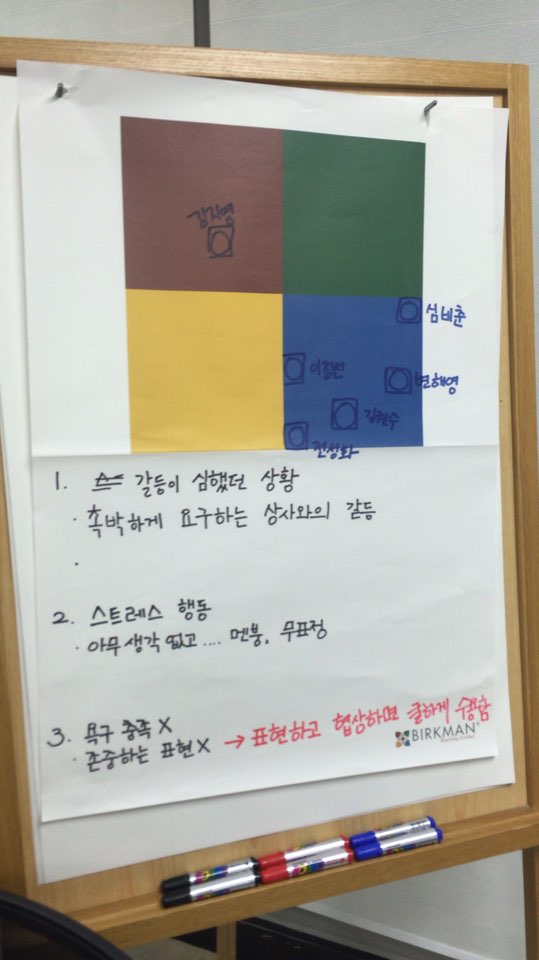 강지영
심비춘
변해영
전성화
1. 갈등이 심했던 상황
· 촉박하게 요구하는 상사와의 갈등
·
2. 스트레스 행동
· 아무생각 없고 .... 멘붕, 무표정
3. 욕구 충족 X
· 존중하는 표현 X → 표현하고 협상하면 쿨하게 수용함
BIRKMAN